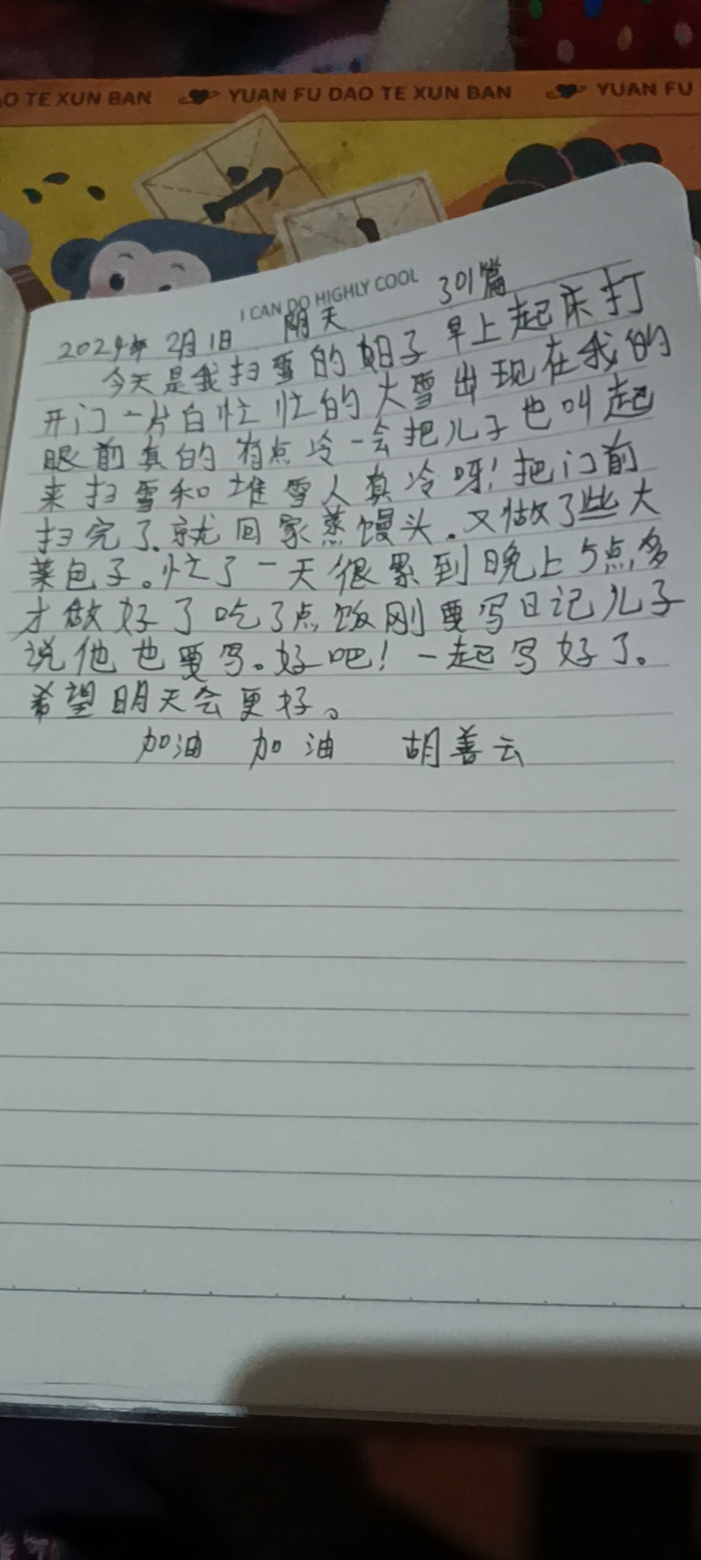 O TE XUN BAN YUAN FU DAO TE XUN BAN YUAN FU
I CAN DO HIGHLY COOL
2024年 2月1日 阴天 301篇
今天是我扫雪的好日子 早上起床打
开门一片白忙忙的大雪出现在我的
眼前真的有点冷一会把儿子也叫起
来扫雪和堆雪人真冷呀!把门前
扫完了.就回家蒸馒头.又做了些大
菜包子。忙了一天很累到晚上5点多
才做好了吃了点饭刚要写日记儿子
说他也要写。好吧!一起写好了。
希望明天会更好。
加油 加油 胡善云